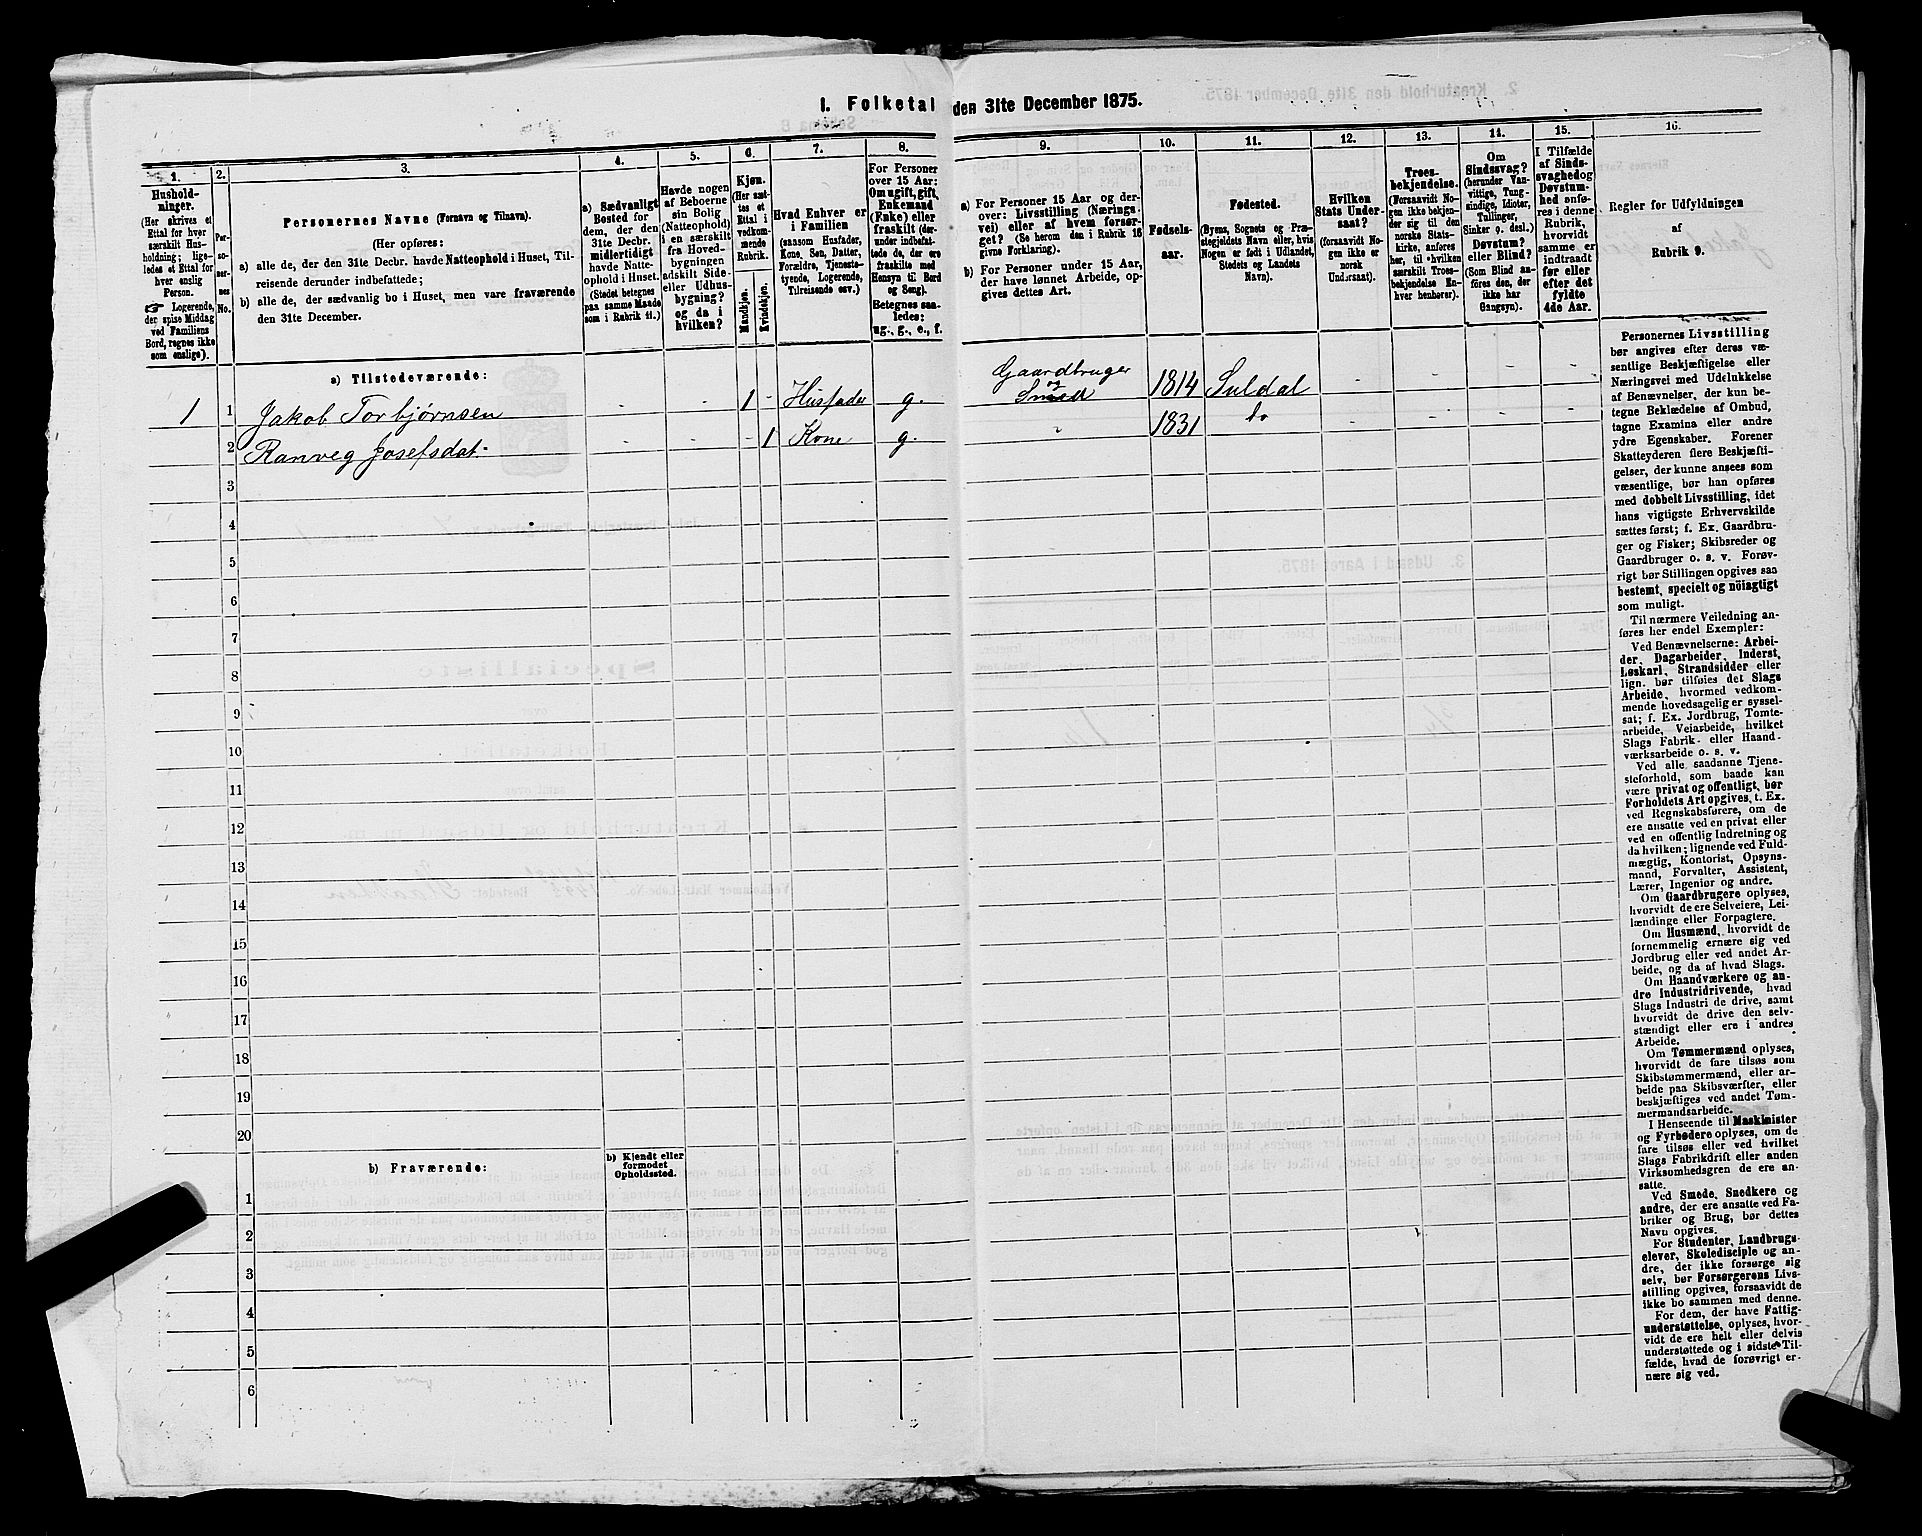 1. Folketal den 31te December 1875.
1.
Hushold-
ninger.
(Her skrives et
Ettal for hver
særskilt Hus-
holdning; lige-
ledes et Ettal for
hver enslig
Person.
☞ Logerende,
der spise Middag
ved Familiens
Bord, regnes ikke
som enslige).
2.
Per-
so-
ner-
nes
No.
3.
Personernes Navne (Fornavn og Tilnavn).
(Her opføres:
a) alle de, der den 31te Decbr. havde Natteophold i Huset, Til-
reisende derunder indbefattede;
b) alle de, der sædvanlig bo i Huset, men vare fraværende
den 31te December.
4.
a) Sædvanligt
Bosted for
dem, der den
31te Decbr.
midlertidigt
havde Natte-
ophold i Huset.
(Stedet betegnes
paa samme Maade
som i Rubrik 11.)
5.
Havde nogen
af Beboerne
sin Bolig
(Natteophold)
i en særskilt
fra Hoved-
bygningen
adskilt Side-
eller Udhus-
bygning?
og da i
hvilken?
6.
Kjøn.
(Her sæt-
tes et
Ettal i
vedkom-
mende
Rubrik.
Mandkjøn.
Kvindekjøn.
7.
Hvad Enhver er
i Familien
(saasom Husfader,
Kone, Søn, Datter,
Forældre, Tjeneste-
tyende, Logerende,
Tilreisende osv.)
8.
For Personer
over 15 Aar:
Om ugift, gift,
Enkemand
(Enke) eller
fraskilt (der-
under indbefat-
tede de, der ere
fraskilte med
Hensyn til Bord
og Seng).
Betegnes saa-
ledes:
ug., g., e., f.
9.
a) For Personer 15 Aar og der-
over: Livsstilling (Nærings-
vei) eller af hvem forsør-
get? (Se herom den i Rubrik 16
givne Forklaring).
b) For Personer under 15 Aar,
der have lønnet Arbeide, op-
gives dettes Art.
10.
Fødsels-
aar.
11.
Fødested.
(Byens, Sognets og Præ-
stegjeldets Navn eller, hvis
Nogen er født i Udlandet,
Stedets og Landets
Navn).
12.
Hvilken
Stats Under-
saat?
(forsaavidt No-
gen ikke er
norsk
Undersaat).
13.
Troes-
bekjendelse.
(Forsaavidt No-
gen ikke bekjen-
der sig til den
norske Stats-
kirke, anføres
her, til hvilken
særskilt Troes-
bekjendelse En-
hver henhører).
14.
Om
Sindssvag?
(herunder Van-
vittige, Tung-
sindige, Idioter,
Tullinger,
Sinker o. desl.)
Døvstum?
eller Blind?
(Som Blind an-
føres den, der
ikke har
Gangsyn).
15.
I Tilfælde
af Sinds-
svaghed og
Døvstum-
hed anfø-
res i denne
Rubrik,
hvorvidt
samme er
indtraadt
før eller
efter det
fyldte
4de Aar.
16.
Regler for Udfyldningen
af
Rubrik 9.
a) Tilstedeværende:
1 1 Jakob Torbjørnsen - - 1 - Husfader g. Gaardbruger og Smed 1814 Suldal - - - -
2 Ranveg Josefsdat. - - - 1 Kone g. - 1831 do - - - -
3
4
5
6
7
8
9
10
11
12
13
14
15
16
17
18
19
20
b) Fraværende:
b) Kjendt eller
formodet
Opholdssted.
1
2
3
4
5
6
Personernes Livsstilling
bør angives efter deres væ-
sentlige Beskjæftigelse eller
Næringsvei med Udelukkelse
af Benævnelser, der kun be-
tegne Beklædelse af Ombud,
tagne Examina eller andre
ydre Egenskaber. Forener
Skatteyderen flere Beskjæfti-
gelser, der kunne ansees som
væsentlige, bør han opføres
med dobbelt Livsstilling, idet
hans vigtigste Erhvervskilde
sættes først; f. Ex. Gaardbru-
ger og Fisker; Skibsreder og
Gaardbruger o. s. v. Forøv-
rigt bør Stillingen opgives saa
bestemt, specielt og nöiagtigt
som muligt.
Til nærmere Veiledning an-
føres her endel Exempler:
Ved Benævnelserne: Arbei-
der, Dagarbeider, Inderst,
Løskarl, Strandsidder eller
lign. bør tilføies det Slags
Arbeide, hvormed vedkom-
mende hovedsagelig er syssel-
sat; f. Ex. Jordbrug, Tomte-
arbeide, Veiarbeide, hvilket
Slags Fabrik- eller Haand-
værksarbeide o. s. v.
Ved alle saadanne Tjene-
steforhold, som baade kan
være privat og offentligt, bør
Forholdets Art opgives, t. Ex.
ved Regnskabsførere, om de
ere ansatte ved en privat eller
ved en offentlig Indretning og
da hvilken; lignende ved Fuld-
mægtig, Kontorist, Opsyns-
mand, Forvalter, Assistent,
Lærer, Ingeniør og andre.
Om Gaardbrugere oplyses,
hvorvidt de ere Selveiere, Lei-
lændinge eller Forpagtere.
Om Husmænd, hvorvidt de
fornemmelig ernære sig ved
Jordbrug eller ved andet Ar-
beide, og da af hvad Slags.
Om Haandværkere og an-
dre Industridrivende, hvad
Slags Industri de drive, samt
hvorvidt de drive den selv-
stændigt eller ere i andres
Arbeide.
Om Tømmermænd oplyses,
hvorvidt de fare tilsøs som
Skibstømmermænd, eller ar-
beide paa Skibsværfter, eller
beskjæftiges ved andet Tøm-
mermandsarbeide.
I Henseende til Maskinister
og Fyrbødere oplyses, om de
fare tilsøs eller ved hvilket
Slags Fabrikdrift eller anden
Virksomhedsgren de ere an-
satte.
Ved Smede, Snedkere og
andre, der ere ansatte ved Fa-
briker og Brug, bør dettes
Navn opgives.
For Studenter, Landbrugs-
elever, Skoledisciple og an-
dre, der ikke forsørge sig
selv, bør Forsørgerens Livs-
stilling opgives, forsaavidt de
ikke bo sammen med denne.
For dem, der have Fattig-
understøttelse, oplyses, hvor-
vidt de ere helt eller delvis
understøttede og i sidste Til-
fælde, hvad de forøvrigt er-
nære sig ved.